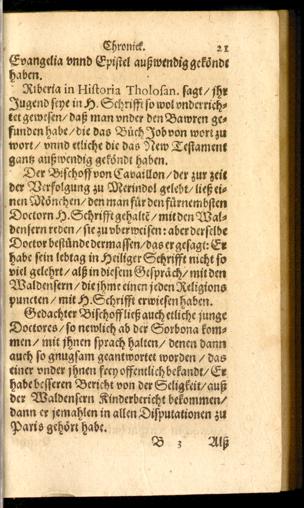 Chronick. 21
Evangelia vnnd Epistel außwendig geköndt
haben.
Riberia in Historia Tholosan. sagt / jhr
Jugend seye in H. Schrifft so wol vnderrich-
tet gewesen / daß man vnder den Bawren ge-
funden habe / die das Büch Job von wort zu
wort / vnnd etliche die das New Testament
gantz außwendig geköndt haben.
Der Bischoff von Cavaillon / der zur zeit
der Verfolgung zu Merindol gelebt / ließ ei-
nen Mönchen / den man für den fürnembsten
Doctorn H. Schrifft gehaltẽ / mit den Wal-
densern reden / sie zu vberweisen: aber derselbe
Doctor bestünde dermassen / das er gesagt: Er
habe sein lebtag in Heiliger Schrifft nicht so
viel gelehrt / alß in diesem Gespräch / mit den
Waldensern / die jhme einen jeden Religions
puncten / mit H. Schrifft erwiesen haben.
Gedachter Bischoff ließ auch etliche junge
Doctores / so newlich ab der Sorbona kom-
men / mit jhnen sprach halten / denen dann
auch so gnugsam geantwortet worden / das
einer vnder jhnen frey offentlich bekandt / Er
habe besseren Bericht von der Seligkeit / auß
der Waldensern Kinderbericht bekommen /
dann er jemahlen in allen Disputationen zu
Paris gehört habe.
B 3 Alß